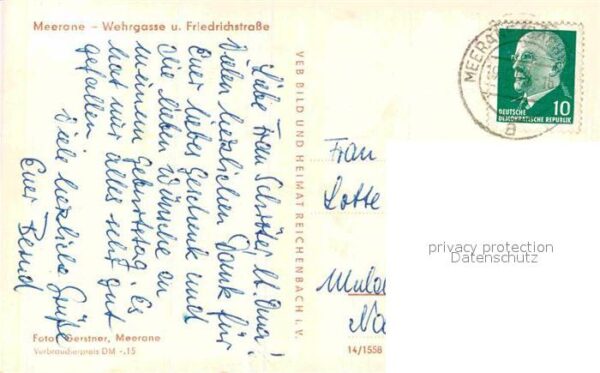 Meerane – Wehrgasse u. Friedrichstraße
Liebe Frau Schröter u. Omi!
Vielen herzlichen Dank für
Euer liebes Geschenk und
die lieben Wünsche zu
meinem Geburtstag. Es
hat mir alles sehr gut
gefallen.
Viele herzliche Grüße
Euer Bernd
Foto: Gerstner, Meerane
Verbraucherpreis DM -.15
VEB BILD UND HEIMAT REICHENBACH i. V.
14/1558
MEERANE
a
10
DEUTSCHE
DEMOKRATISCHE REPUBLIK
Frau
Lotte
privacy protection
Datenschutz
Muld
Na